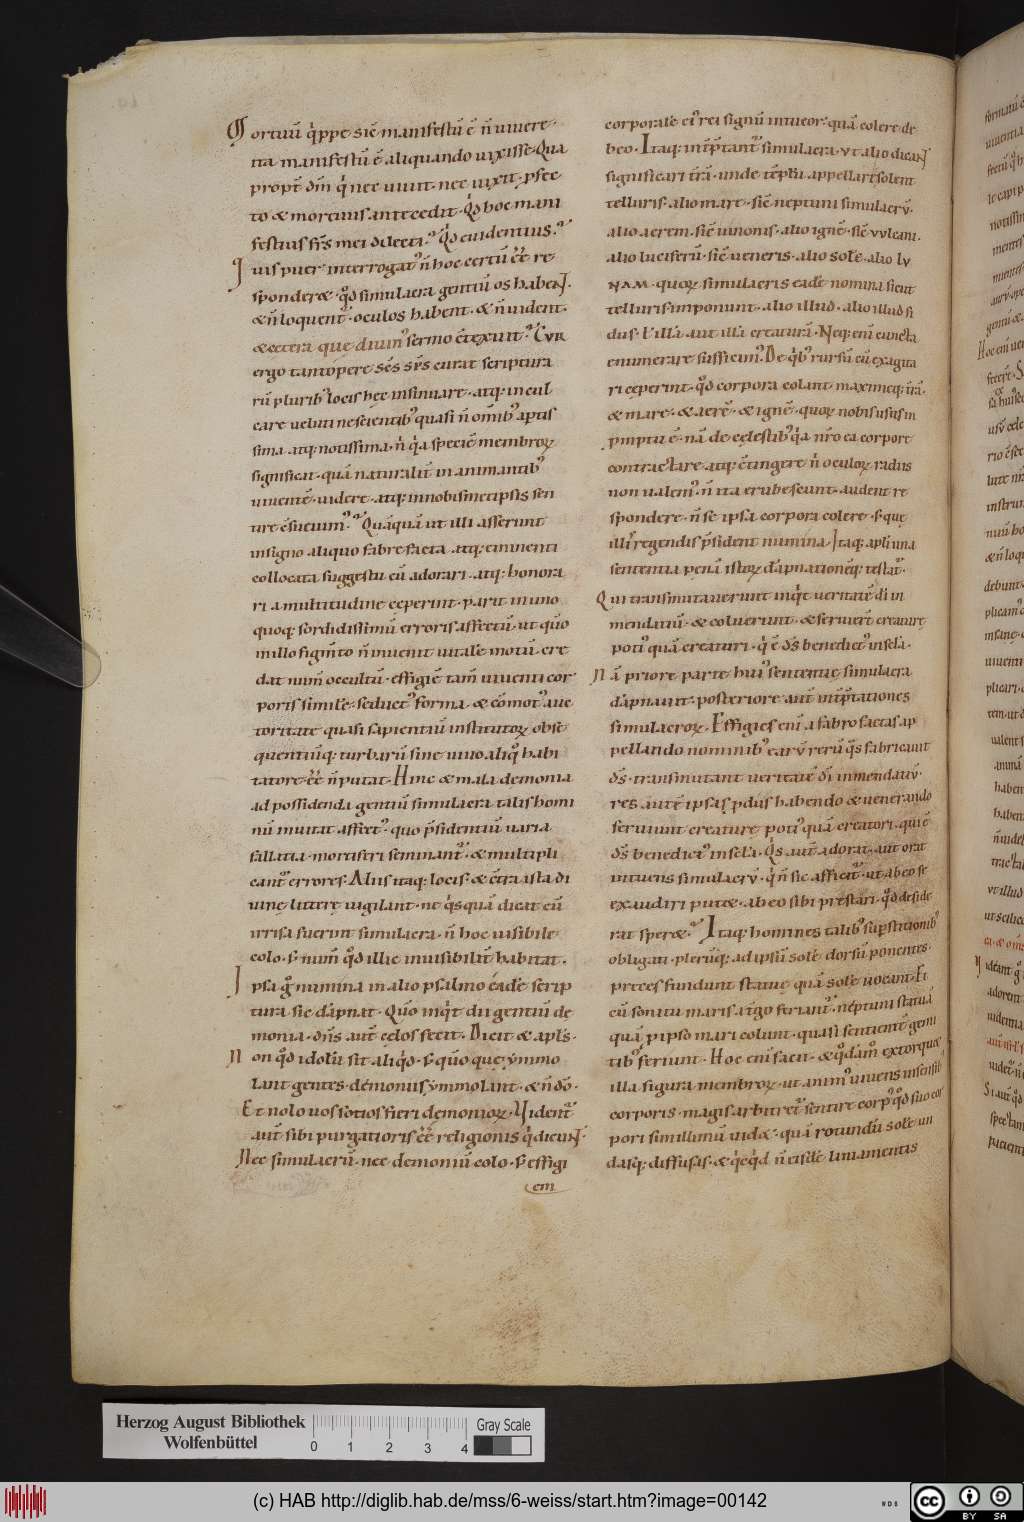 Mortuū q̇ppe sic̄ manifestū ē n̄ uiuere·
ita manifestū ē aliquando uixisse· Qua
propt̄ dm̄ q̇ nec uiuit· nec uixit· ꝑfec
to & mortuis antecedit· Qd̄ hoc mani
festius fr̄s mei dilecti? Qd̄ euidentius?
uis puer interrogat᷒ n̄ hoc certū ēē re
spondere· qd̄ simulacra gentiū os habeNT·
& n̄ loquent᷒· oculos habent· & n̄ uident·
& cetera que diuin᷒ sermo ctexuit? Cur
ergo tantopere scs sps curat scriptura
rū pluribꝰ locis hęc insinuare· atq; incul
care uelut nescientibꝰ quasi n̄ omībꝰ aptis
sima atq; notissima· n̄ q̇a speciē membroꝝ
significat· quā naturalit̄ in animantibꝰ
uiuentē uidere· atq; in nobismetipsis sen
tire c̄sueuim᷒? Quāquā ut illi asserunt
insigno aliquo fabrefacta· atq; eminenti
collocata suggestu cū adorari· atq; honora
ri a multitudine cęperint· parit in uno
quoq; sordidissimū erroris affectū· ut qm̄
in illo figm̄to n̄ inuenit uitale motū· cre
dat num̄ occultū· effigiē tam̄ uiuenti cor
pori similē· seduct᷒ forma· & cōmot᷒ auc
toritate quasi sapientiū institutoꝝ obse
quentiūq; turbarū sine uiuo aliq̇ habi
tatore· ēē n̄ putat· Hinc & mala demonia
ad possidendā gentiū simulacra talis homi
nū inuitat affect᷒· quo p̄sidentiū uaria
fallatia· mortiferi seminant᷒· & multipli
cant᷒ errores· Aliis itaq; locis· & ctra ista di
uinę litterę uigilant· ne q̇squā dicat cū
irrisa fuerint simulacra· n̄ hoc uisibile
colo· s; num̄ qd̄ illic inuisibilit̄ habitat·
Ipsa g̊ numina in alio psalmo eadē scrip
tura sic dāpnat· Qm̄ inq̇t dii gentiū de
monia· dn̄s aut̄ cęlos fecit· Dicit & apl̄s·
Non qd̄ idolū sit aliq̇d· s; qm̄ que ymmo
lant gentes· demoniis ymmolant· & n̄ dō·
Et nolo uos socios fieri demonioꝝ· Uident᷒
aut̄ sibi purgatioris ēē religionis q̇ dicunt·
Nec simulacrū· nec demoniū colo· s; effigi
em
corporale ei᷒ rei signū intueor· quā colere de
beo· Itaq; int̄p̄tant᷒ simulacra· ut alio dicaNT
significari t̄rā· unde tēplū appellari solent
telluris· alio mare· sic̄ neptuni simulacrū·
alio aerem· sic̄ iunonis· alio ignē· sic̄ vulcani·
alio luciferū· sic̄ ueneris· alio solē· alio lu
NAM· quoꝝ simulacris eadē nomina sicut
telluris imponunt· alio illud· alio illud si
dus· l illā aut illā creaturā· Neq; enī cuncta
enumerare sufficim᷒· De q̇bꝰ rursū cū exagita
ri cęperint· qd̄ corpora colant· maximeq; t̄rā·
& mare· & aerē· & ignē· quoꝝ nobis usus in
prinptu ē· nā de cęlestibꝰ q̇a nr̄o ea corpore
contractare atq; c̄tingere n̄ oculoꝝ radiis
non ualem᷒· n̄ ita erubescunt· audent re
spondere· n̄ se ipsa corpora colere· s; que
illis regendis p̄sident numina· Itaq; apl̄i una
sententia penā istoꝝ dāpnationēq; testat᷒·
Qui transmutauerunt inq̇t ueritatē dī in
mendatiū· & coluerunt· & seruierūt creaturę
poti᷒ quā creatori· q̇ ē dſ benedict᷒ in scl̄a·
Nā priore parte hui᷒ sententię simulacra
dāpnauit· posteriore aut̄ int̄p̄tationes
simulacroꝝ· Effigies enī a fabro factas ap
pellando nominibꝰ earū rerū q̇s fabricauit
dſ· transmutant ueritatē dī in mendatiū·
res autē ipsas p diis habendo & uenerando
seruiunt creature poti᷒ quā creatori· qui ē
dſ benedict᷒ in scl̄a· Q̇s aut̄ adorat· aut orat
intuens simulacrū· q̇ n̄ sic afficit᷒· ut ab eo se
exaudiri putet· ab eo sibi prestari· qd̄ deside
rat speret? Itaq; homines talibꝰ suꝑstitionibꝰ
obligati· plerūq; ad ipsū solē dorsū ponentes·
preces fundunt statuę quā solē uocant· Et
cū sonitu maris a tergo feriant᷒· neptuni statuā
quā p ipso mari colunt· quasi sentientē gemi
tibꝰ feriunt· Hoc enī facit· & qdāmo extorquet
illa figura membroꝝ· ut anim᷒ uiuens in sensibꝰ
corporis· magis arbitret᷒ sentire corp᷒ qd̄ suo cor
pori simillimū uidet· quā rotundū solē un
dasq; diffusas· & q̇cq̇d n̄ eisdē liniamentis
Herzog August Bibliothek
Wolfenbüttel
0 1 2 3 4
Gray Scale
(c) HAB http://diglib.hab.de/mss/6-weiss/start.htm?image=00142
BY SA